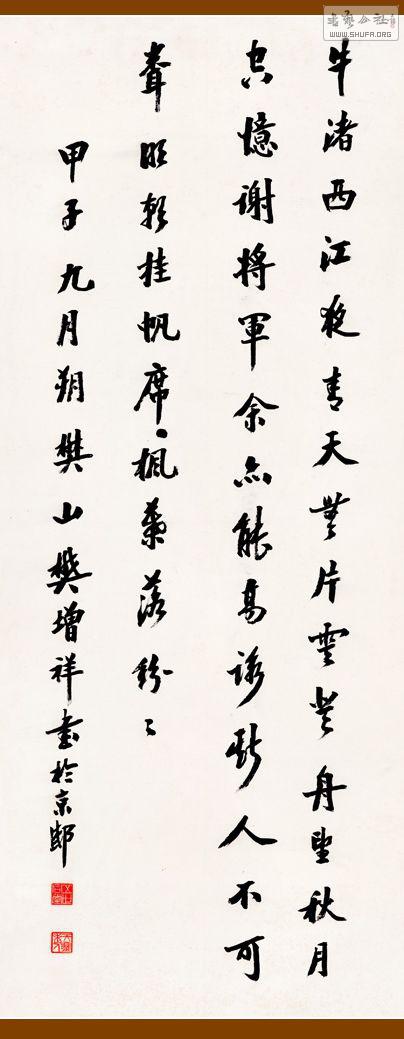 書藝公社
WWW.SHUFA.ORG
牛渚西江夜青天無片雲登舟望秋月
空憶謝將軍余亦能高詠斯人不可
聞明朝挂帆席楓葉落紛〻
甲子九月朔樊山樊增祥書於京邸